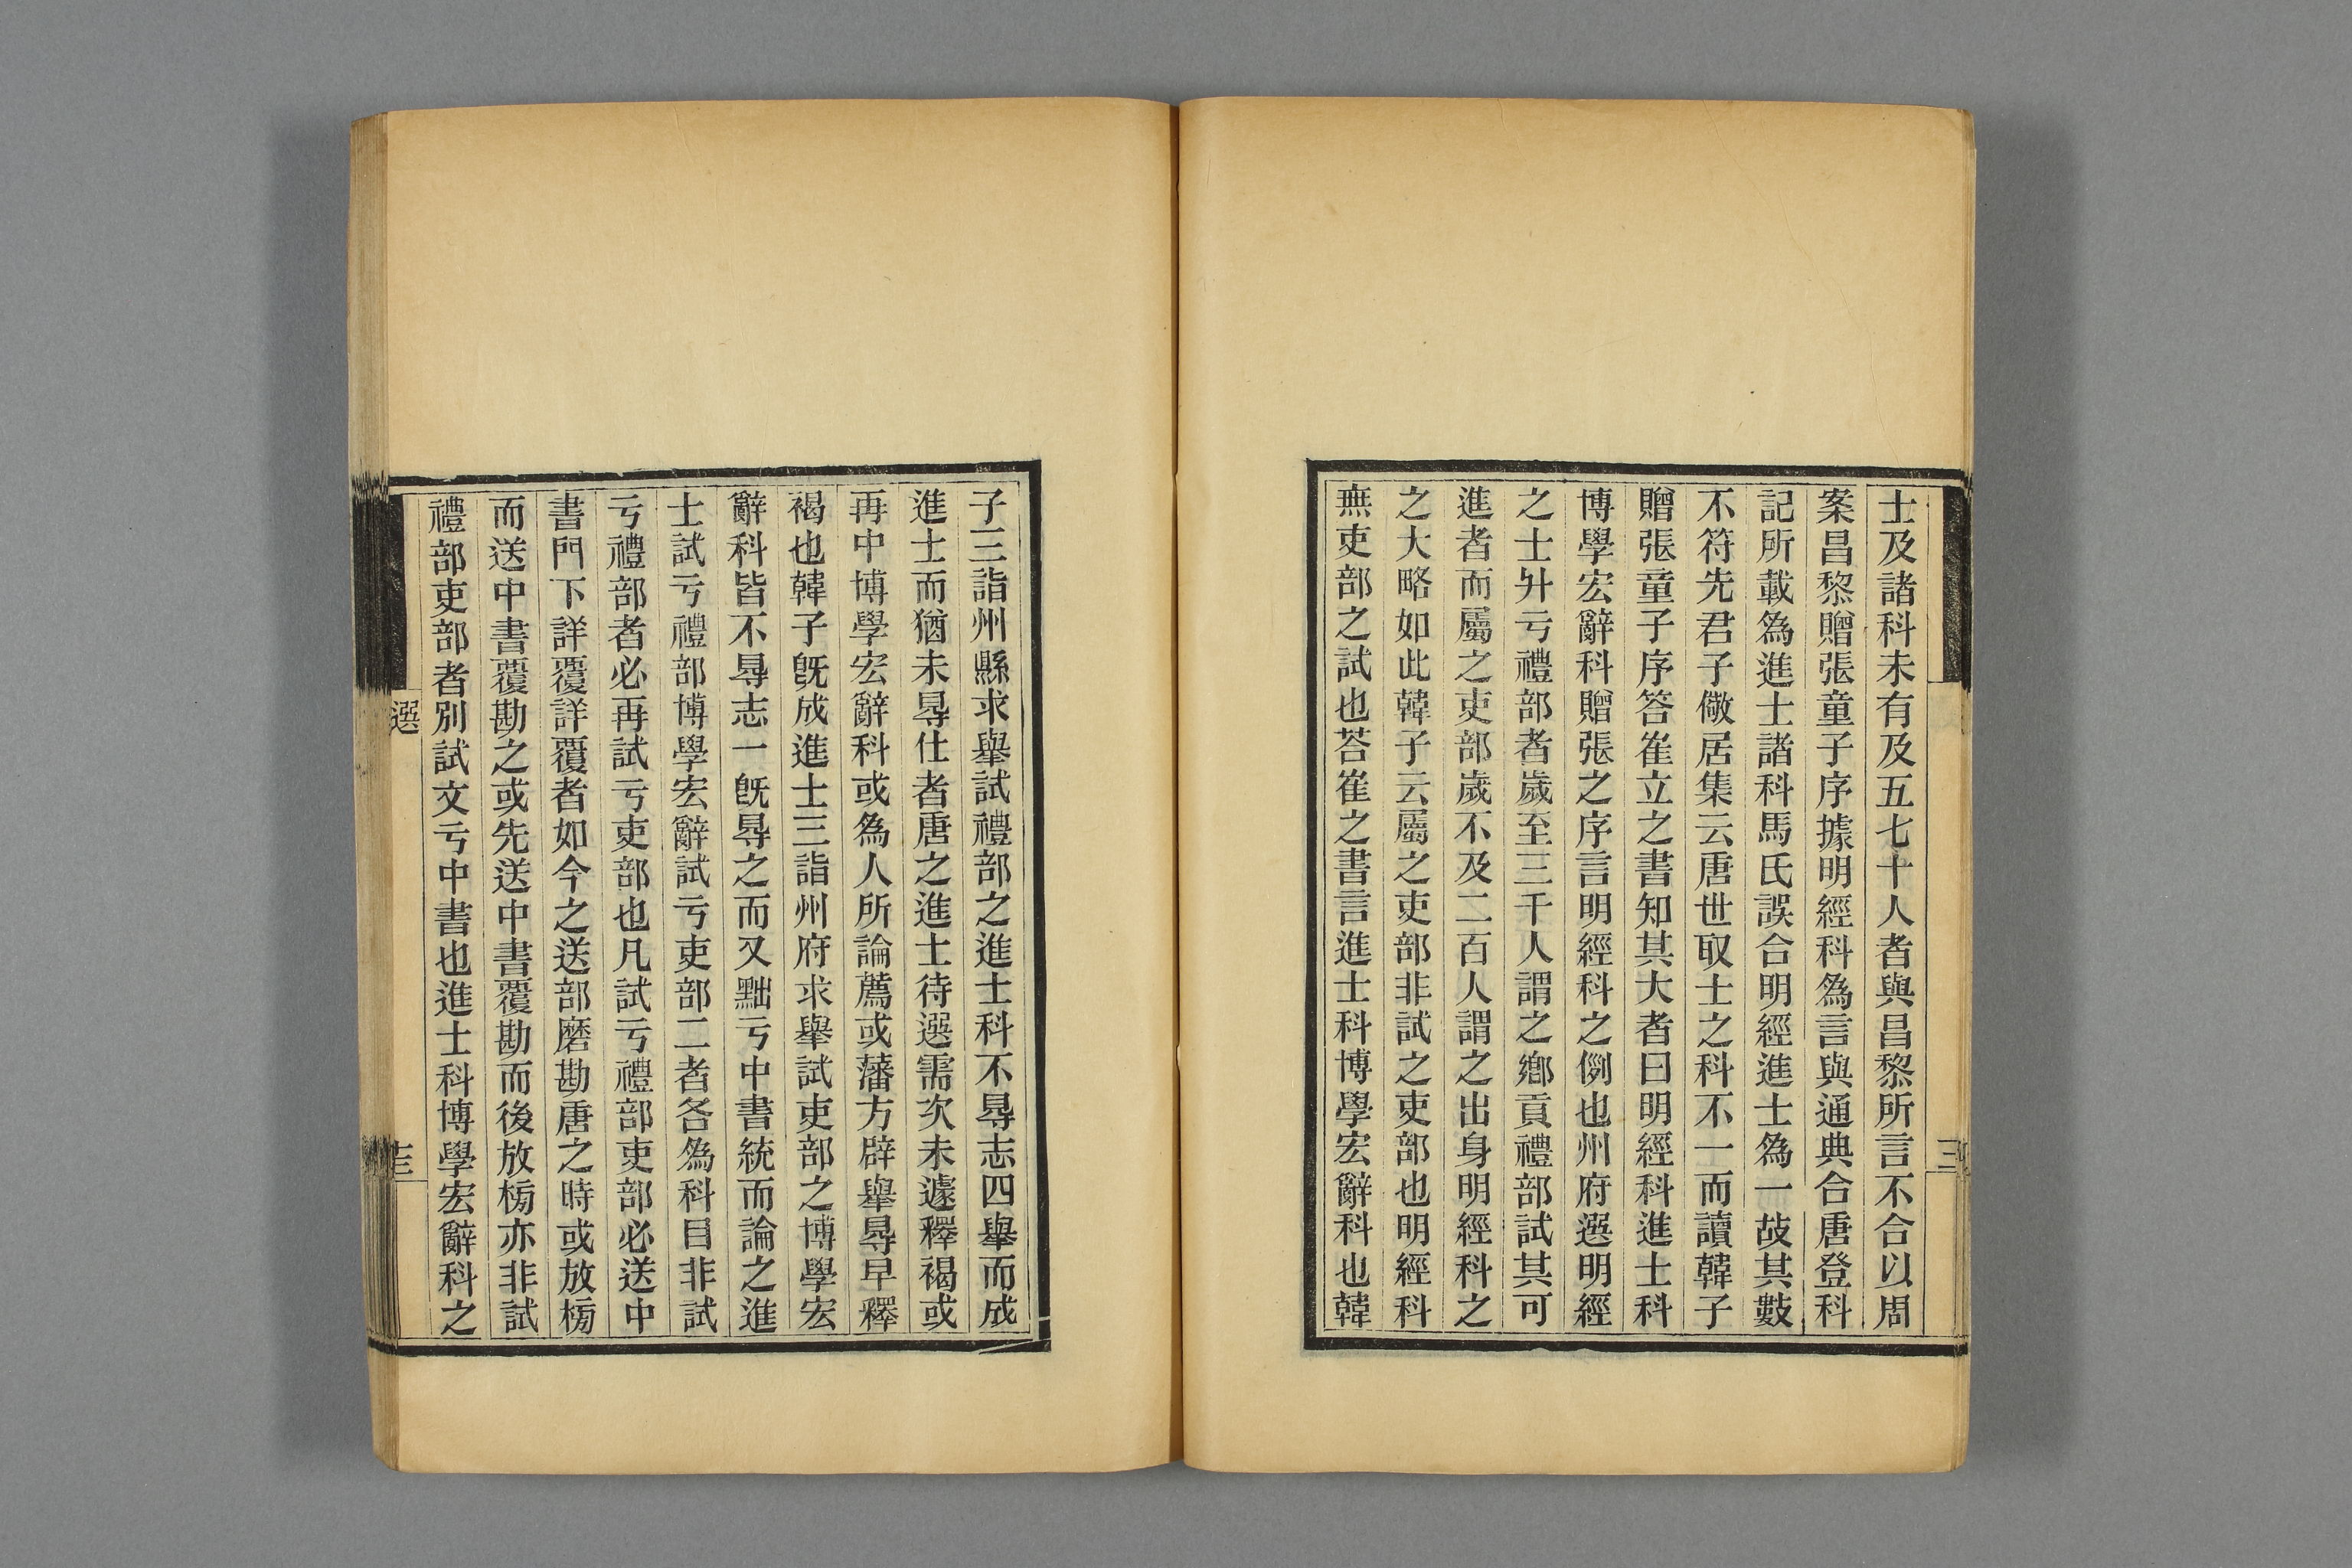 士及諸科未有及五七十人者與昌黎所言不合以周
案昌黎贈張童子序據明經科爲言與通典合唐登科
記所載爲進士諸科馬氏誤合明經進士爲一故其數
不符先君子儆居集云唐世取士之科不一而讀韓子
贈張童子序答崔立之書知其大者曰明經科進士科
博學宏辭科贈張之序言明經科之例也州府選明經
之士升亏禮部者歲至三千人謂之鄉貢禮部試其可
進者而屬之吏部歲不及二百人謂之出身明經科之
之大略如此韓子云屬之吏部非試之吏部也明經科
無吏部之試也荅崔之書言進士科博學宏辭科也韓
子三詣州縣求舉試禮部之進士科不㝵志四舉而成
進士而猶未㝵仕者唐之進士待選需次未遽釋褐或
再中博學宏辭科或爲人所論薦或藩方辟舉㝵早釋
褐也韓子旣成進士三詣州府求舉試吏部之博學宏
辭科皆不㝵志一旣㝵之而又黜亏中書統而論之進
士試亏禮部博學宏辭試亏吏部二者各爲科目非試
亏禮部者必再試亏吏部也凡試亏禮部吏部必送中
書門下詳覆詳覆者如今之送部磨勘唐之時或放榜
而送中書覆勘之或先送中書覆勘而後放榜亦非試
禮部吏部者別試文亏中書也進士科博學宏辭科之
選